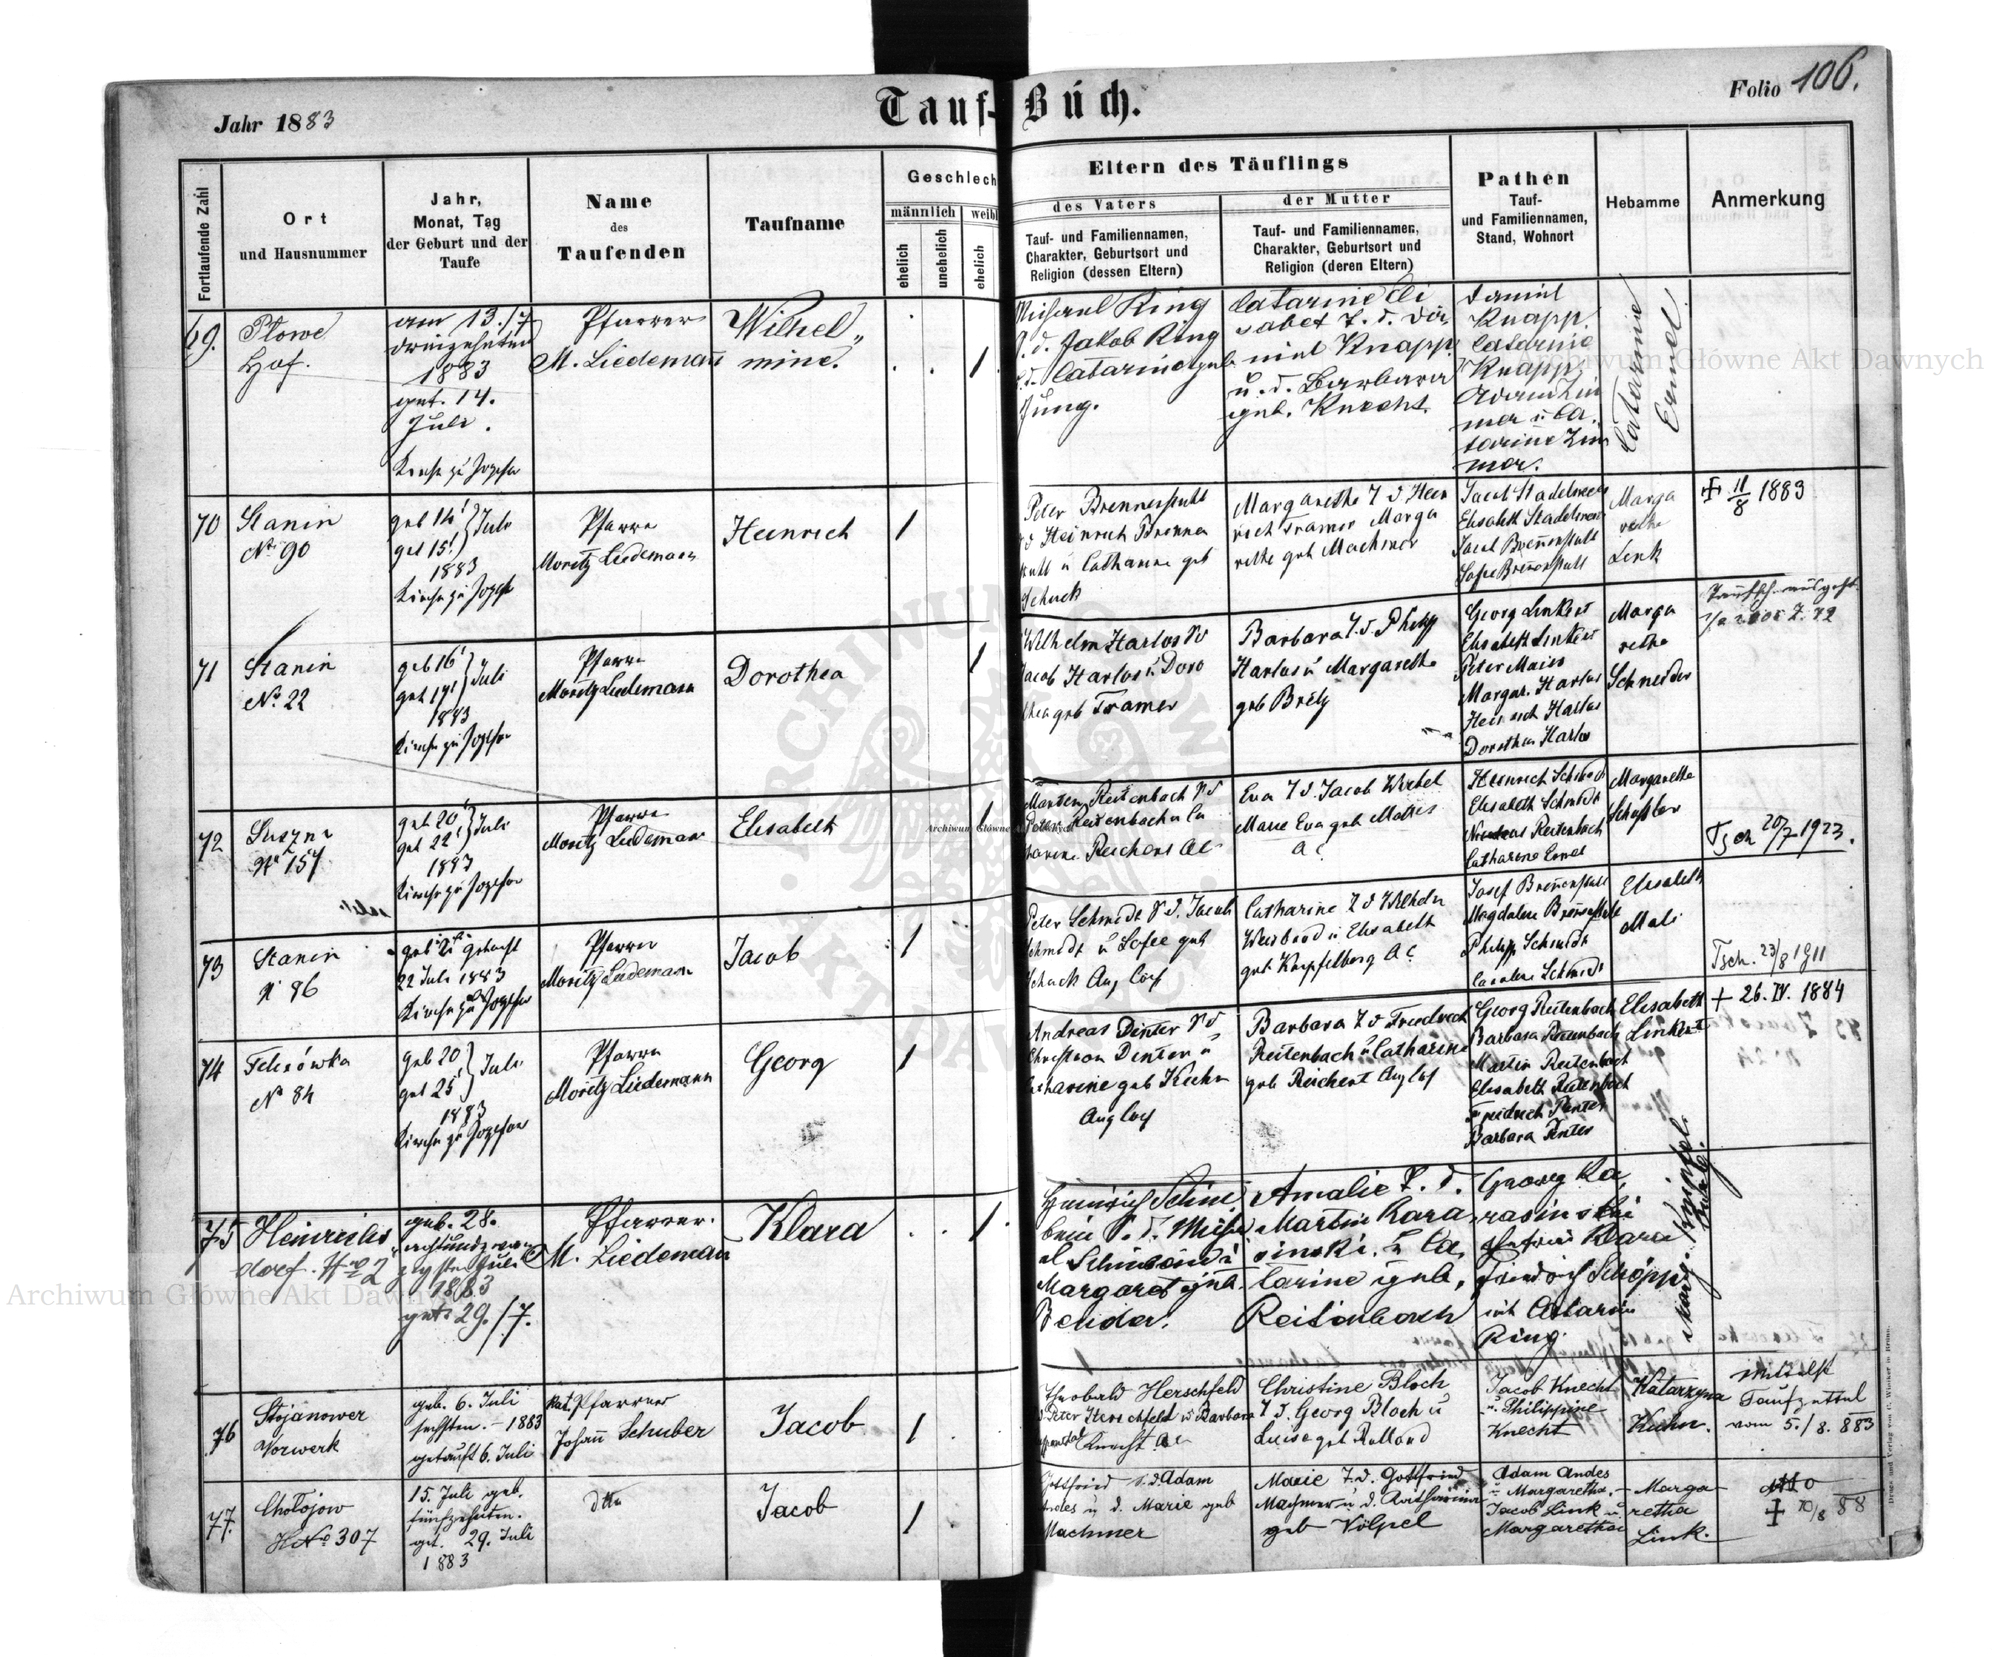 Jahr 1883
Tauf-Buch.
Folio 106.
Fortlaufende Zahl
Ort
und Hausnummer
Jahr,
Monat, Tag
der Geburt und der
Taufe
Name
des
Taufenden
Taufname
Geschlech
männlich
weibl
ehelich
unehelich
ehelich
Eltern des Täuflings
des Vaters
Tauf- und Familiennamen,
Charakter, Geburtsort und
Religion (dessen Eltern)
der Mutter
Tauf- und Familiennamen,
Charakter, Geburtsort und
Religion (deren Eltern)
Pathen
Tauf-
und Familiennamen,
Stand, Wohnort
Hebamme
Anmerkung
69.
Płowe
Hof.
am 13./7
dreizehnten
1883
get. 14.
Juli.
Kirche zu Josefow
Pfarrer
M. Liedemann
Wilhel„
mine.
1
Michael Ring
S. d. Jakob Ring
u. d. Catarine geb
Jung.
Catarine Eli
sabet T. d. Da
niel Knapp
u. d. Barbara
geb. Knecht.
Daniel
Knapp.
Catarine
Knapp,
Adam Zim
mer u Ca
tarine Zim
mer.
Catarine
Ernd.
70
Stanin
No. 90
geb 14
get 15
Juli
1883
Kirche zu Josefow
Pfarrer
Moritz Liedemann
Heinrich
1
Peter Brennenstuhl
S d Heinrich Brennen
stuhl u Catharine geb
Schuck
Margarethe T d Hein
rich Tramer Marga
rethe geb Machmer
Jacob Stadelmeier
Elisabeth Stadelmeier
Jacob Brennenstuhl
Sofie Brennenstuhl
Marga
rethe
Link
+ 11/8 1883
71
Stanin
No. 22
geb 16
get 17
Juli
1883
Kirche zu Josefow
Pfarrer
Moritz Liedemann
Dorothea
1
Wilhelm Harlos S d
Jacob Harlos u Doro
thea geb Tramer
Barbara T. d Philipp
Harlos u Margarethe
geb Bretz
Georg Linkert
Elisabeth Linkert
Peter Maier
Margar. Harlos
Heinrich Harlos
Dorothea Harlos
Marga
rethe
Schneider
72
Suszno
No 157
geb 20
get 22
Juli
1883
Kirche zu Josefow
Pfarrer
Moritz Liedemann
Elisabeth
1
Martin Reitenbach S d
Peter Reitenbach u Ca
tharine Reichert AC
Eva T d Jacob Wirbel
Marie Eva geb Mattis
A C
Heinrich Schmidt
Elisabeth Schmidt
Reitenbach
Catharine
Margarethe
Schissler
Tsch 20/7 1923.
73
Stanin
N 86
getauft
22 Juli 1883
Kirche zu Josefow
Pfarrer
Moritz Liedemann
Jacob
1
Peter Schmidt S d. Jacob
Schmidt u Sofie geb
Schuck Aug Conf
Catharine T d Wilhelm
Weisbrod u Elisabeth
geb Knipfelberg A C
Josef Brennenstuhl
Magdalene Brennenstuhl
Philipp Schmidt
Caroline Schmidt
Elisabeth
Mali
Tsch. 23/8 1911
74
Felixówka
N 84
geb 20
get 25
Juli
1883
Kirche zu Josefow
Pfarrer
Moritz Liedemann
Georg
1
Andreas Dinter S d
Christian Dinter u
Catharine geb Kuhn
Aug Conf
Barbara T d Friedrich
Reitenbach u Catharine
geb Reichert Aug Conf
Georg Reitenbach
Barbara Reitenbach
Martin Reitenbach
Elisabeth Reitenbach
Friedrich Dinter
Barbara Dinter
Elisabeth
Linkert
+ 26. IV. 1884
75
Heinrichs
dorf. No 2
geb. 28.
achtundzwan
zigsten Juli
1883
get. 29./7.
Pfarrer.
M. Liedemann
Klara
1
Heinrich Schön
bein S. d. Micha
el Schönbein u
Margaret geb.
Bender.
Amalie T. d.
Martin Kara
sinski. u Ca
tarine geb,
Reitenbach
Georg Ka
rasinski
Klara
Friedrich Schöpp
mit Catarin
Ring.
76
Stojanower
Vorwerk
geb. 6. Juli
sechsten. – 1883
getauft 6. Juli
Kat. Pfarrer
Johann Schuber
Jacob
1
Theobald Herschfeld
S. Peter Herschfeld u Barbara
Knecht AC
Christine Bloch
T d. Georg Bloch u
Luise geb Rolland
Jacob Knecht
u Philippine
Knecht
Katarzyna
Kuhn.
mittelst
Taufzettel
vom 5./8. 883
77.
Chołojow
H No 307
15. Juli geb.
fünfzehnten.
get. 29. Juli
1883
dtto
Jacob
1
Gottfried S. d. Adam
Andes u d. Marie geb
Machmer
Marie T. d. Gottfried
Machmer u d. Katharina
geb Völpel
Adam Andes
u Margaretha,
Jacob Link u
Margaretha
Marga
retha
Link.
dtto
+ 10/8 88
Druck und Verlag von C. Winiker in Brünn.
Archiwum Główne Akt Dawnych
Archiwum Główne Akt Dawnych
Archiwum Główne Akt Dawnych